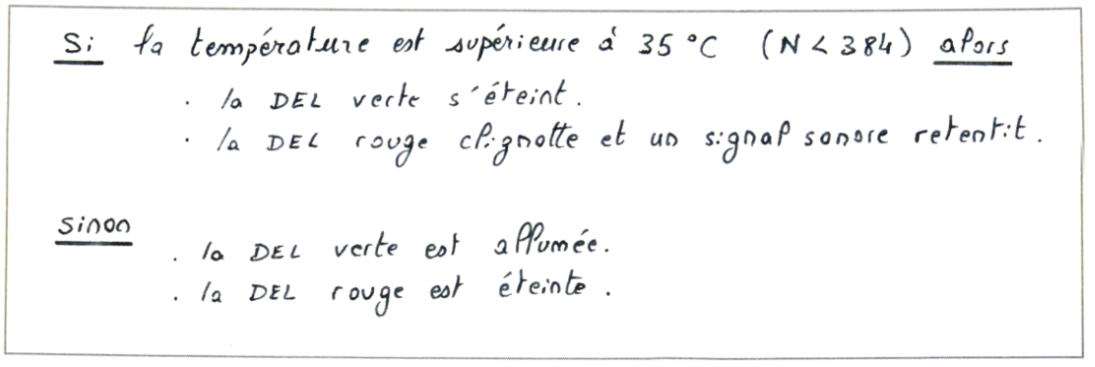 Si la température est supérieure à 35 °C (N < 384) alors
. la DEL verte s'éteint.
. la DEL rouge clignotte et un signal sonore retentit.
Sinon
. la DEL verte est allumée.
. la DEL rouge est éteinte.